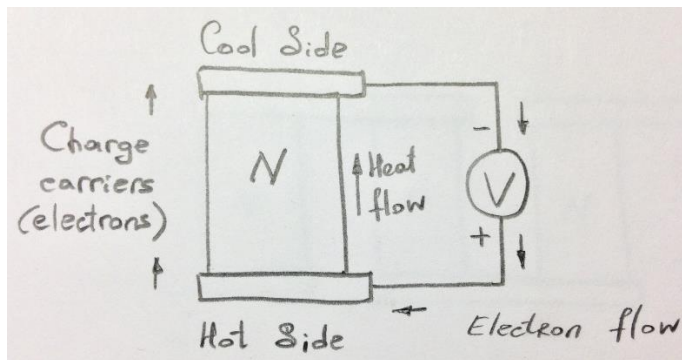 Cool Side
Charge
carriers
(electrons)
N
Heat
flow
-
V
+
Hot Side
Electron flow